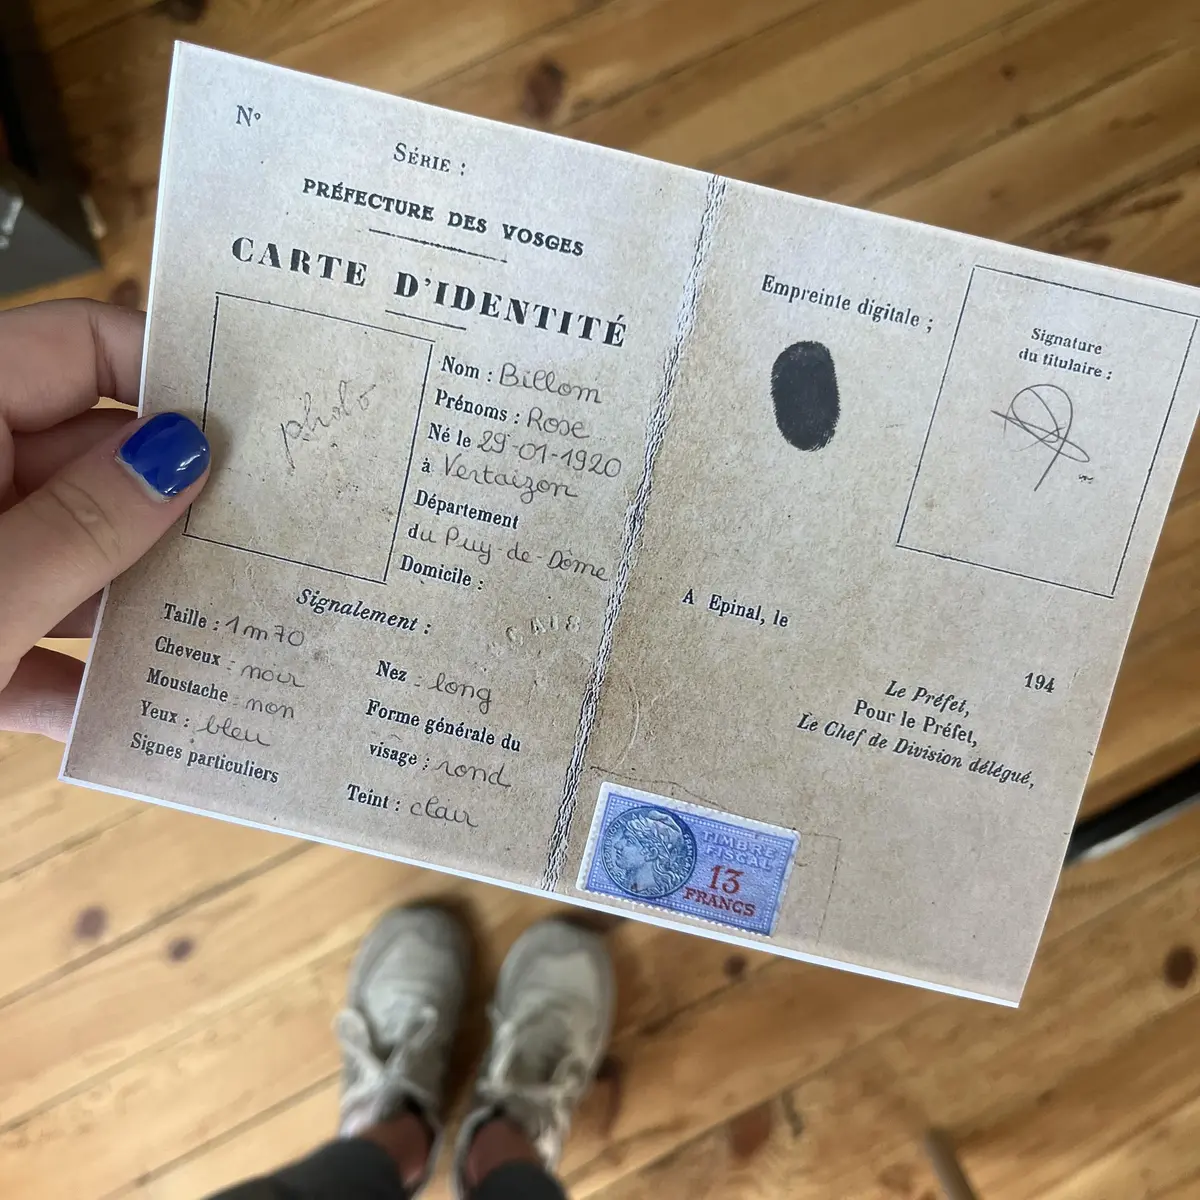 N°
SÉRIE :
PRÉFECTURE DES VOSGES
CARTE D'IDENTITÉ
photo
Nom : Billom
Prénoms : Rose
Né le 29-01-1920
à Vertaizon
Département
du Puy-de-Dôme
Domicile :
Signalement :
Taille : 1m70
Cheveux : noir
Moustache : non
Yeux : bleu
Signes particuliers
Nez : long
Forme générale du
visage : rond
Teint : clair
Empreinte digitale ;
Signature
du titulaire :
A Epinal, le
194
Le Préfet,
Pour le Préfet,
Le Chef de Division délégué,
TIMBRE
FISCAL
13
FRANCS